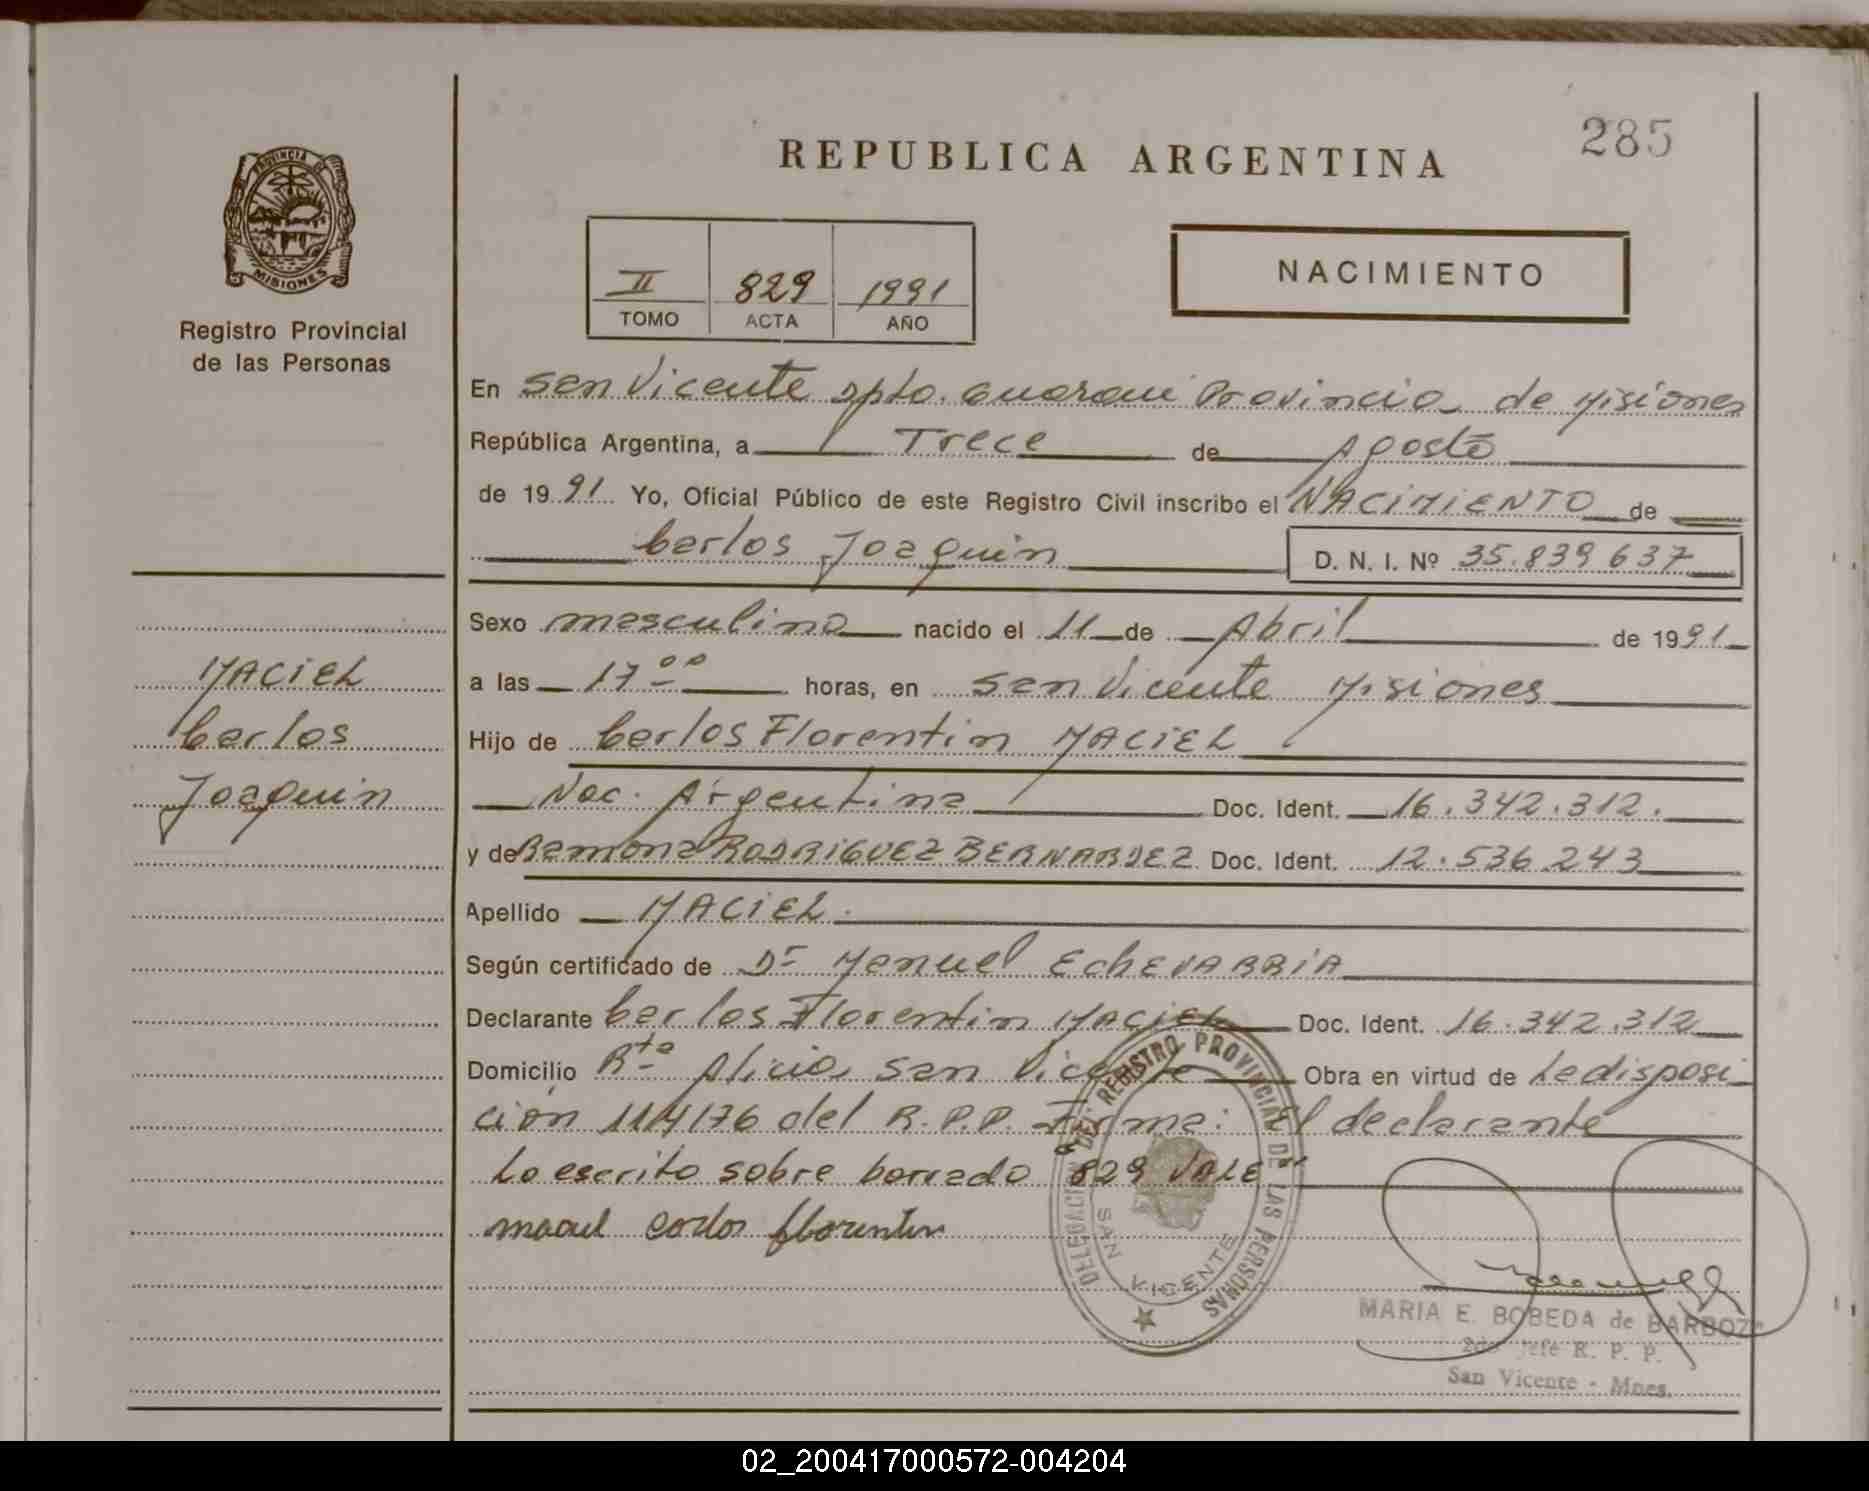 285
REPUBLICA ARGENTINA
PROVINCIA DE
MISIONES
Registro Provincial
de las Personas
NACIMIENTO
II 829 1991
TOMO ACTA AÑO
En San Vicente Dpto. Guarani Provincia de Misiones
República Argentina, a Trece de Agosto
de 1991 Yo, Oficial Público de este Registro Civil inscribo el NACIMIENTO de
Carlos Joaquin D. N. I. Nº 35.839 637
Sexo masculino nacido el 11 de Abril de 1991
a las 17 00 horas, en San Vicente Misiones
Hijo de Carlos Florentin MACIEL
Nac. Argentina Doc. Ident. 16.342.312.
y de Ramona RODRIGUEZ BERNARDEZ Doc. Ident. 12.536 243
Apellido MACIEL.
Según certificado de Dr Manuel EchevARRiA
Declarante Carlos Florentin MACIEL Doc. Ident. 16.342.312
Domicilio Rta Alicia San Vicente Obra en virtud de La disposi
ción 114/76 del R.P.P. Firma: El declarante
Lo escrito sobre borrado 829 VALE"
maciel Carlos florentin
MACIEL
Carlos
Joaquin
DELEGACION DEL REGISTRO PROVINCIAL DE LAS PERSONAS
SAN VICENTE
MARIA E. BOBEDA de BARBOZA
2do Jefe R. P. P.
San Vicente - Mnes.
02_200417000572-004204